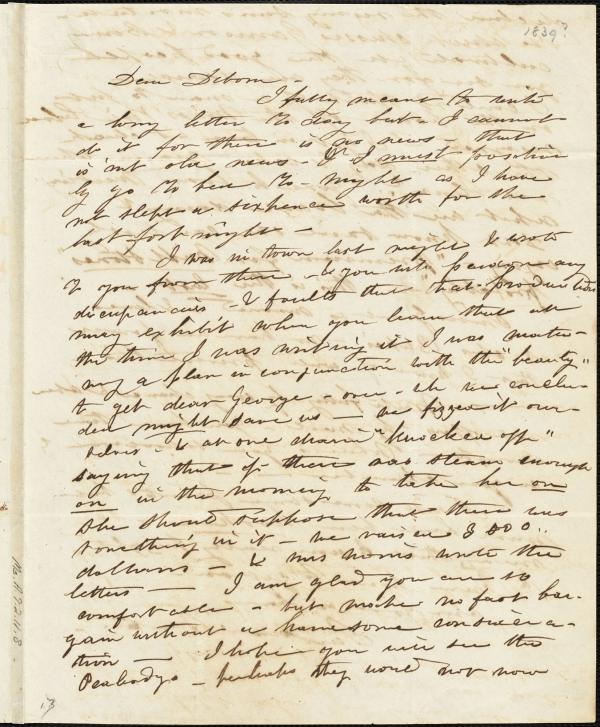 1839?
Dear Deborah –
I fully meant to write
a long letter to day but – I cannot
do it for there is no news – that
is'nt old news – & I must positive
ly go to bed to-night as I have
not slept a sixpence worth for the
last fortnight –
I was in town last night & wrote
to you from there – & you will pardon any
discrepancies – & faults that that production
may exhibit when you learn that all
the time I was writing it I was matu-
ring a plan in conjunction with the "beauty"
to get dear George – over – wh we conclu-
ded might save us – we fizzed it our-
selves – & at one "knocked off"
saying that if there was steam enough
on in the morning to take her on
she should suppose that there was
something in it – we raised 3000..
dollars – & Mrs Norris wrote the
letters – I am glad you are so
comfortable – but make no fast bar-
gain without a handsome considera-
tion – I hope you will see the
Peabodys – perhaps they would not now